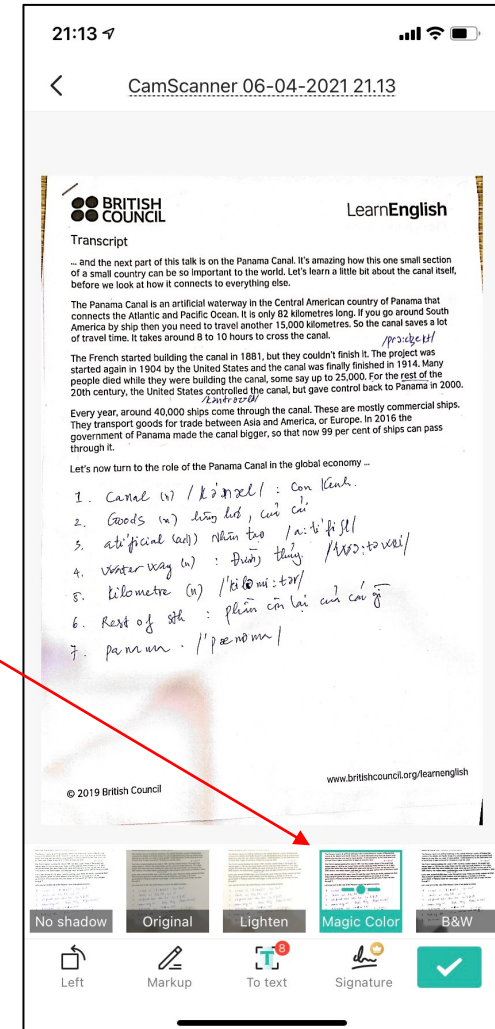 21:13
CamScanner 06-04-2021 21.13
BRITISH
COUNCIL
LearnEnglish
Transcript
... and the next part of this talk is on the Panama Canal. It's amazing how this one small section
of a small country can be so important to the world. Let's learn a little bit about the canal itself,
before we look at how it connects to everything else.
The Panama Canal is an artificial waterway in the Central American country of Panama that
connects the Atlantic and Pacific Ocean. It is only 82 kilometres long. If you go around South
America by ship then you need to travel another 15,000 kilometres. So the canal saves a lot
of travel time. It takes around 8 to 10 hours to cross the canal.
The French started building the canal in 1881, but they couldn't finish it. The project was
started again in 1904 by the United States and the canal was finally finished in 1914. Many
people died while they were building the canal, some say up to 25,000. For the rest of the
20th century, the United States controlled the canal, but gave control back to Panama in 2000.
Every year, around 40,000 ships come through the canal. These are mostly commercial ships.
They transport goods for trade between Asia and America, or Europe. In 2016 the
government of Panama made the canal bigger, so that now 99 per cent of ships can pass
through it.
Let's now turn to the role of the Panama Canal in the global economy ...
1. Canal (n) : Con kênh.
2. Goods (n) hàng hoá, của cải
3. atificial (adj) Nhân tạo
4. water way (n) : Đường thủy.
5. kilometre (n)
6. Rest of sth : phần còn lại của cái gì
7.
© 2019 British Council
www.britishcouncil.org/learnenglish
No shadow
Original
Lighten
Magic Color
B&W
Left
Markup
T 8
To text
Signature